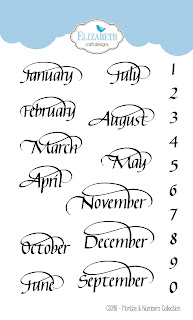 ELIZABETH
craft designs
January July 1
2
February August 3
March 4
May 5
April 6
November 7
October December 8
9
June September 0
CS098 - Months & Numbers Collection